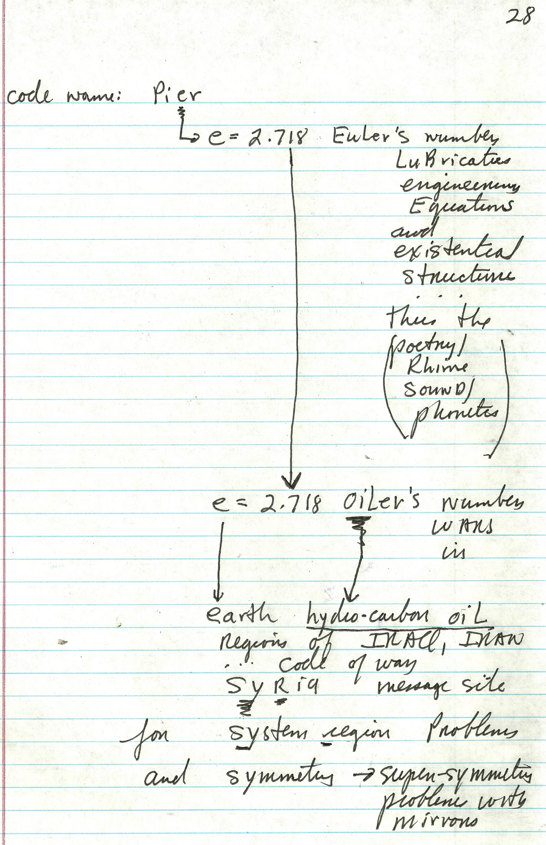 28
code name: Pier
e = 2.718 EuLer's number
LuBricaties
engineering
Equations
and
existential
structure
. . .
thus the
(poetry/
Rhime
sound/
phonetics)
e = 2.718 OiLer's number
WARS
in
earth hydro-carbon oiL
Regions of IRAQ, IRAN
... code of way
SyRia message site
for system region Problems
and symmetry → super-symmetry
problem with
mirrors